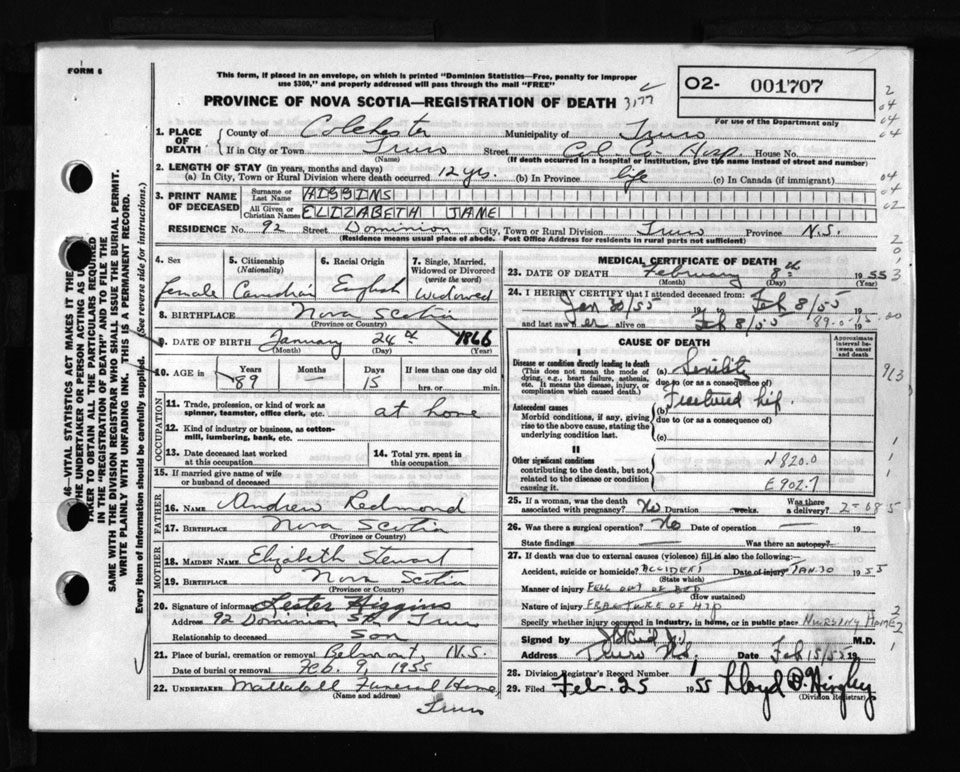 FORM 6
This form, if placed in an envelope, on which is printed "Dominion Statistics—Free, penalty for improper
use $300," and properly addressed will pass through the mail "FREE"
PROVINCE OF NOVA SCOTIA—REGISTRATION OF DEATH 3177
O2- 001707
For use of the Department only
1. PLACE OF DEATH { County of Colchester Municipality of Truro
If in City or Town Truro Street Col. Co. Hosp. House No.
(Name) (If death occurred in a hospital or institution, give the name instead of street and number)
2. LENGTH OF STAY (in years, months and days)
(a) In City, Town or Rural Division where death occurred 12 yrs. (b) In Province life (c) In Canada (if immigrant)
3. PRINT NAME OF DECEASED Surname or Last Name HIGGINS
All Given or Christian Names ELIZABETH JANE
RESIDENCE No. 92 Street Dominion City, Town or Rural Division Truro Province N.S.
(Residence means usual place of abode. Post Office Address for residents in rural parts not sufficient)
4. Sex Female
5. Citizenship (Nationality) Canadian
6. Racial Origin English
7. Single, Married, Widowed or Divorced (write the word) Widowed
8. BIRTHPLACE Nova Scotia
(Province or Country)
9. DATE OF BIRTH January 24th 1866
(Month) (Day) (Year)
10. AGE in Years Months Days If less than one day old
89 — 15 hrs. or min.
OCCUPATION
11. Trade, profession, or kind of work as spinner, teamster, office clerk, etc. at home
12. Kind of industry or business, as cotton-mill, lumbering, bank, etc.
13. Date deceased last worked at this occupation
14. Total yrs. spent in this occupation
15. If married give name of wife or husband of deceased
FATHER
16. NAME Andrew Redmond
17. BIRTHPLACE Nova Scotia
(Province or Country)
MOTHER
18. MAIDEN NAME Elizabeth Stewart
19. BIRTHPLACE Nova Scotia
(Province or Country)
20. Signature of informant Lester Higgins
Address 92 Dominion St., Truro
Relationship to deceased Son
21. Place of burial, cremation or removal Belmont, N.S.
Date of burial or removal Feb. 9, 1955
22. UNDERTAKER Mattatall Funeral Home,
(Name and address)
Truro
MEDICAL CERTIFICATE OF DEATH
23. DATE OF DEATH February 8th 1955
(Month) (Day) (Year)
24. I HEREBY CERTIFY that I attended deceased from:
Jan 30/55 19 to Feb 8/55 19
and last saw her alive on Feb 8/55 19
CAUSE OF DEATH
Approximate interval between onset and death
I
Disease or condition directly leading to death (a) Senility
(This does not mean the mode of dying, e.g., heart failure, asthenia, etc. It means the disease, injury, or complication which caused death.)
due to (or as a consequence of)
Antecedent causes (b) Fractured hip
Morbid conditions, if any, giving rise to the above cause, stating the underlying condition last.
due to (or as a consequence of)
(c)
II
Other significant conditions
contributing to the death, but not related to the disease or condition causing it.
N820.0
E902.7
25. If a woman, was the death associated with pregnancy? No Duration weeks. Was there a delivery?
26. Was there a surgical operation? No Date of operation —
State findings — Was there an autopsy?
27. If death was due to external causes (violence) fill in also the following:—
Accident, suicide or homicide? ACCIDENT Date of injury JAN. 30 1955
(State which)
Manner of injury FELL OUT OF BED
(How sustained)
Nature of injury FRACTURE OF HIP
Specify whether injury occurred in industry, in home, or in public place NURSING HOME
Signed by M.D.
Address Truro N.S. Date Feb 15/55 19
28. Division Registrar's Record Number
29. Filed Febr. 25 1955 Lloyd
(Division Registrar)
46—VITAL STATISTICS ACT MAKES IT THE
THE UNDERTAKER OR PERSON ACTING AS
TAKER TO OBTAIN ALL THE PARTICULARS REQUIRED
IN THE "REGISTRATION OF DEATH" AND TO FILE THE
SAME WITH THE DIVISION REGISTRAR WHO SHALL ISSUE THE BURIAL PERMIT.
WRITE PLAINLY WITH UNFADING INK. THIS IS A PERMANENT RECORD.
Every item of information should be carefully supplied. (See reverse side for instructions.)